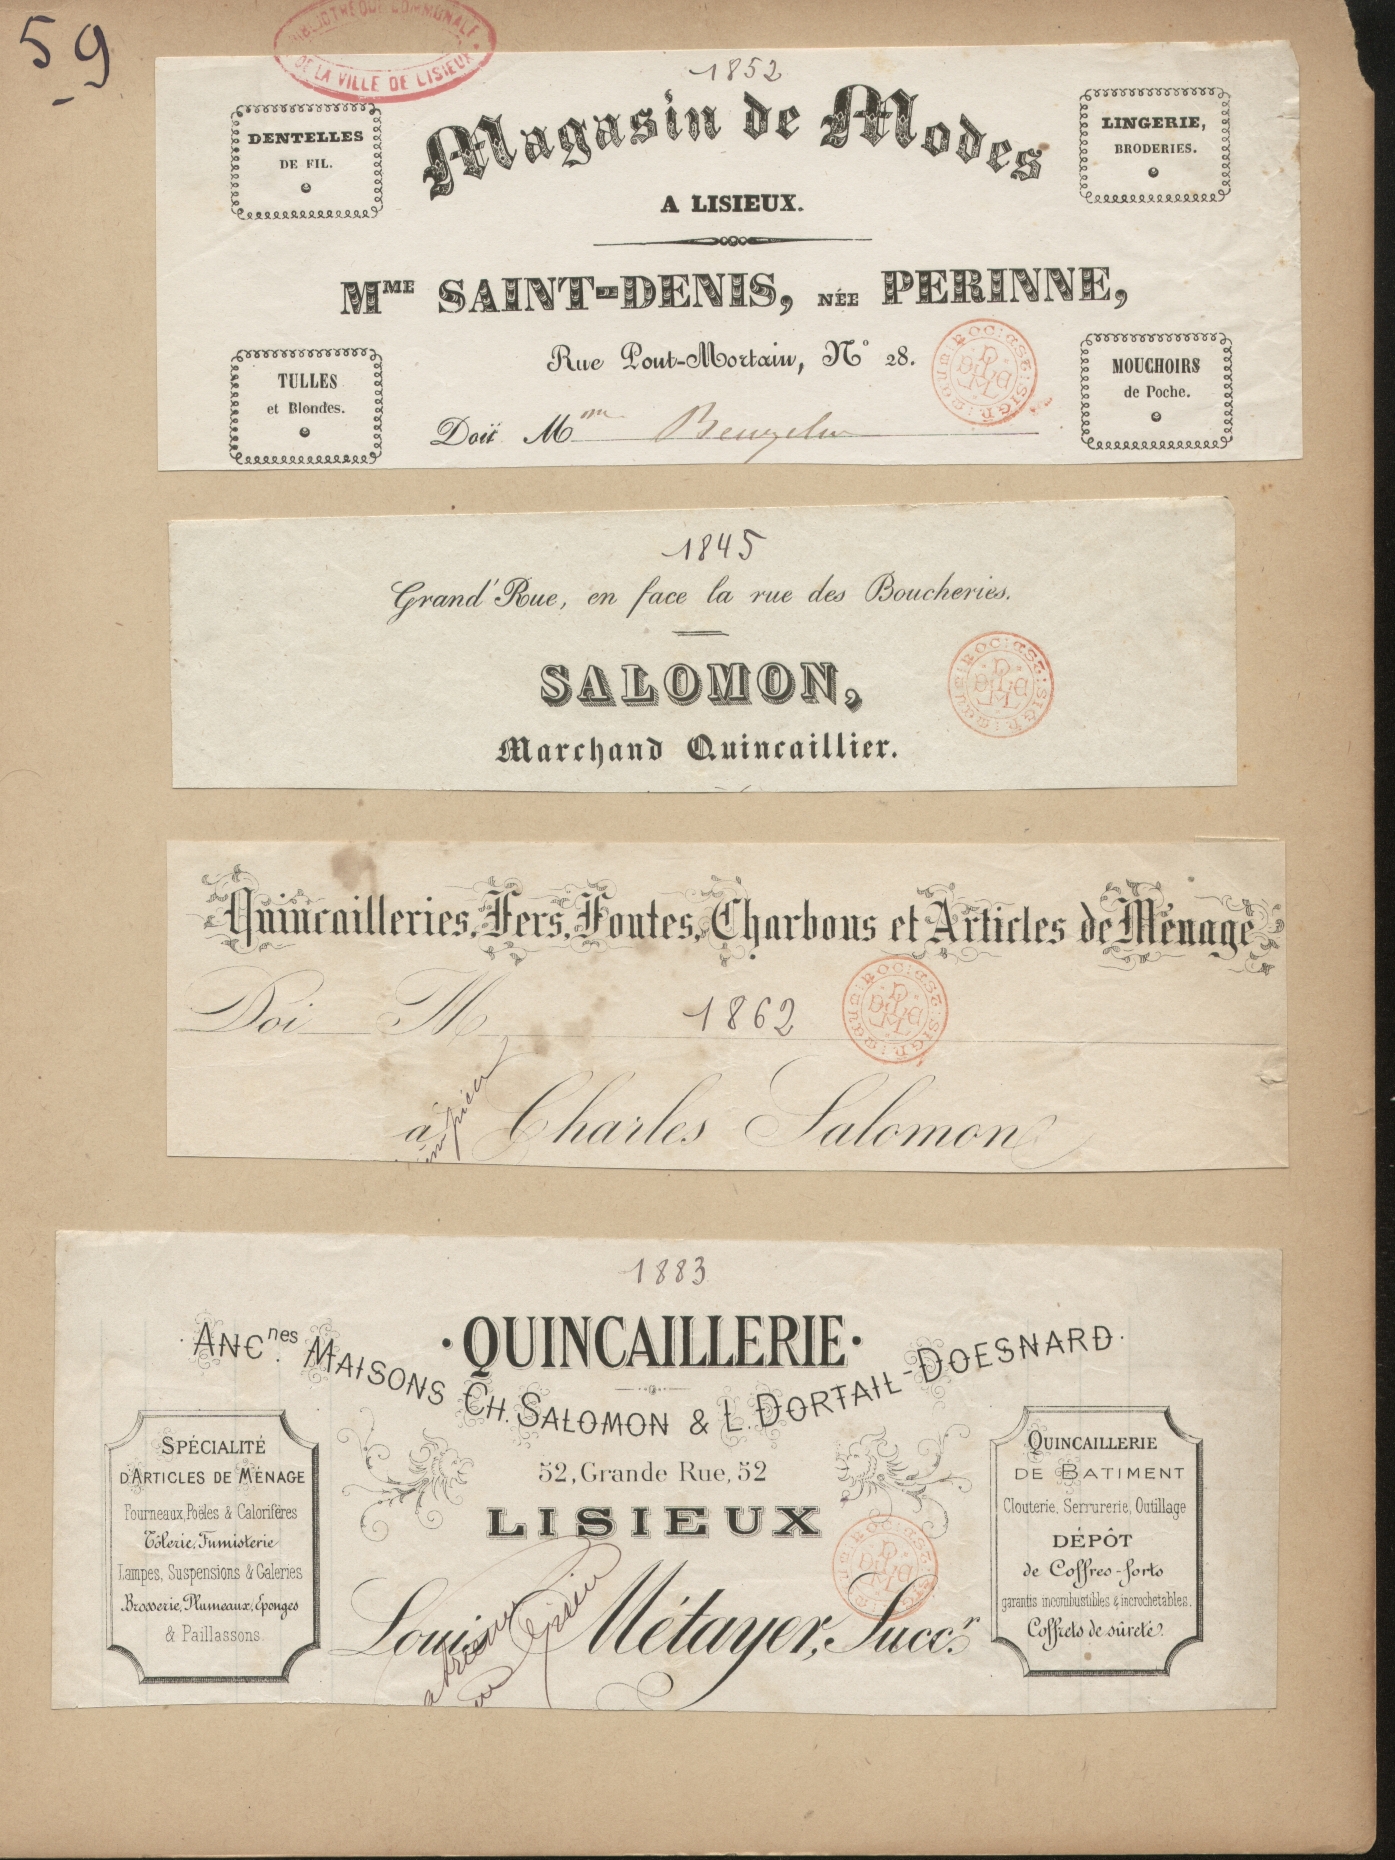 59
BIBLIOTHÈQUE COMMUNALE
DE LA VILLE DE LISIEUX
1852
Magasin de Modes
A LISIEUX.
DENTELLES
DE FIL.
LINGERIE,
BRODERIES.
MME SAINT-DENIS, NÉE PERINNE,
Rue Pont-Mortain, N° 28.
TULLES
et Blondes.
MOUCHOIRS
de Poche.
Doit Mme
1845
Grand'Rue, en face la rue des Boucheries.
SALOMON,
Marchand Quincaillier.
Quincailleries, Fers, Fontes, Charbons et Articles de Ménage
Doi M
1862
à Charles Salomon
1883
· QUINCAILLERIE ·
· ANCnes MAISONS CH. SALOMON & L. DORTAIL-DOESNARD ·
52, Grande Rue, 52
LISIEUX
Louis Métayer, Succr
SPÉCIALITÉ
D'ARTICLES DE MÉNAGE
Fourneaux, Poëles & Calorifères
Tôlerie, Fumisterie
Lampes, Suspensions & Galeries
Brosserie, Plumeaux, Eponges
& Paillassons
QUINCAILLERIE
DE BATIMENT
Clouterie, Serrurerie, Outillage
DÉPÔT
de Coffres-forts
garantis incombustibles & incrochetables.
Coffrets de sûreté.